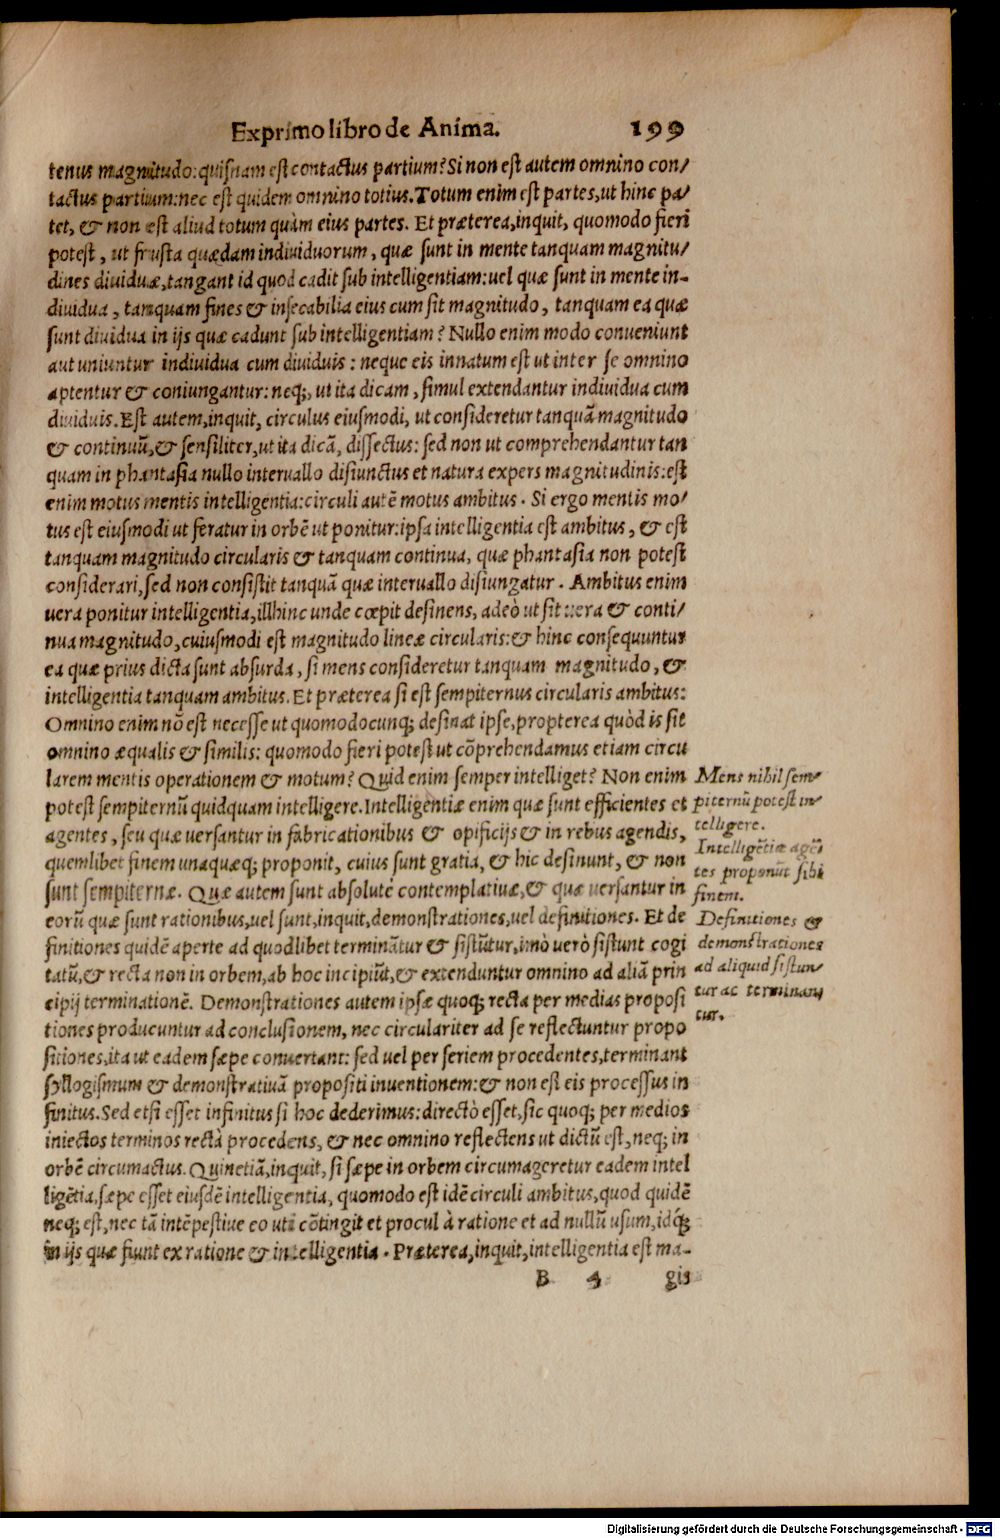 Ex primo libro de Anima. 199
tenus magnitudo: quisnam est contactus partium? Si non est autem omnino con/
tactus partium: nec est quidem omnino totius. Totum enim est partes, ut hinc pa/
tet, & non est aliud totum quàm eius partes. Et præterea, inquit, quomodo fieri
potest, ut frusta quædam individuorum, quæ sunt in mente tanquam magnitu/
dines dividuæ, tangant id quod cadit sub intelligentiam: uel quæ sunt in mente in-
dividua, tanquam fines & insecabilia eius cum sit magnitudo, tanquam ea quæ
sunt dividua in ijs quæ cadunt sub intelligentiam? Nullo enim modo conueniunt
aut uniuntur individua cum dividuis: neque eis innatum est ut inter se omnino
aptentur & coniungantur: neq;, ut ita dicam, simul extendantur individua cum
dividuis. Est autem, inquit, circulus eiusmodi, ut consideretur tanquã magnitudo
& continuũ, & sensiliter, ut ita dicã, dissectus: sed non ut comprehendantur tan
quam in phantasia nullo interuallo disiunctus et natura expers magnitudinis: est
enim motus mentis intelligentia: circuli autẽ motus ambitus. Si ergo mentis mo/
tus est eiusmodi ut feratur in orbẽ ut ponitur: ipsa intelligentia est ambitus, & est
tanquam magnitudo circularis & tanquam continua, quæ phantasia non potest
considerari, sed non consistit tanquã quæ interuallo disiungatur. Ambitus enim
uera ponitur intelligentia, illhinc unde cœpit desinens, adeò ut sit uera & conti/
nua magnitudo, cuiusmodi est magnitudo lineæ circularis: & hinc consequuntur
ea quæ prius dicta sunt absurda, si mens consideretur tanquam magnitudo, &
intelligentia tanquam ambitus. Et præterea si est sempiternus circularis ambitus:
Omnino enim nõ est necesse ut quomodocunq; desinat ipse, propterea quòd is sit
omnino æqualis & similis: quomodo fieri potest ut cõprehendamus etiam circu
larem mentis operationem & motum? Quid enim semper intelliget? Non enim
potest sempiternũ quidquam intelligere. Intelligentiæ enim quæ sunt efficientes et
agentes, seu quæ uersantur in fabricationibus & opificijs & in rebus agendis,
quemlibet finem unaquæq; proponit, cuius sunt gratia, & hic desinunt, & non
sunt sempiternæ. Quæ autem sunt absolutè contemplatiuæ, & quæ uersantur in
eorũ quæ sunt rationibus, uel sunt, inquit, demonstrationes, uel definitiones. Et de
finitiones quidẽ aperte ad quodlibet terminãtur & sistũtur, imò uerò sistunt cogi
tatũ, & recta non in orbem, ab hoc incipiũt, & extenduntur omnino ad aliã prin
cipij terminationẽ. Demonstrationes autem ipsæ quoq; recta per medias proposi
tiones producuntur ad conclusionem, nec circulariter ad se reflectuntur propo
sitiones, ita ut eadem sæpe conuertant: sed uel per seriem procedentes, terminant
syllogismum & demonstratiuã propositi inuentionem: & non est eis processus in
finitus. Sed etsi esset infinitus si hoc dederimus: directò esset, sic quoq; per medios
iniectos terminos rectà procedens, & nec omnino reflectens ut dictũ est, neq; in
orbẽ circumactus. Quinetiã, inquit, si sæpe in orbem circumageretur eadem intel
ligẽtia, sæpe esset eiusdẽ intelligentia, quomodo est idẽ circuli ambitus, quod quidẽ
neq; est, nec tã intẽpestiue eo uti cõtingit et procul à ratione et ad nullũ usum, idq́;
in ijs quæ fiunt ex ratione & intelligentia. Præterea, inquit, intelligentia est ma-
B 4 gis
Mens nihil sem/
piternũ potest in/
telligere.
Intelligẽtiæ agẽ
tes proponũt sibi
finem.
Definitiones &
demonstrationes
ad aliquid sistun/
tur ac terminan
tur.
Digitalisierung gefördert durch die Deutsche Forschungsgemeinschaft - DFG